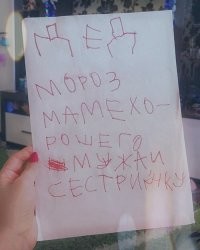 ДЕД
МОРОЗ
МАМЕХО-
РОШЕГО
МУЖАИ
СЕСТРИЧКУ